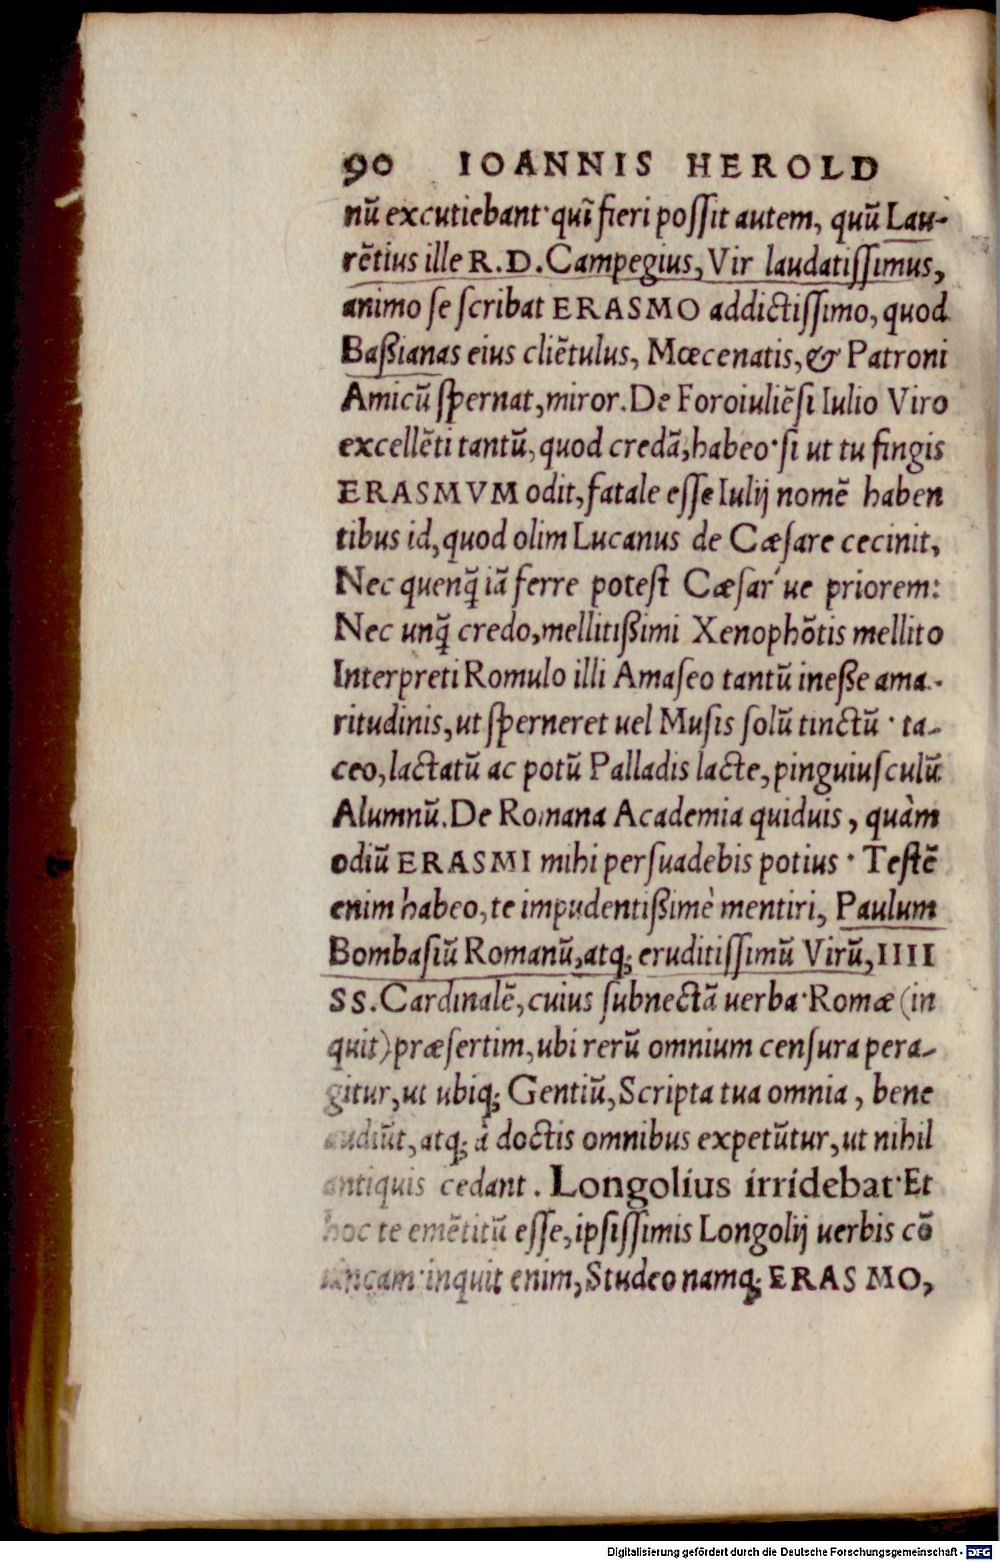 90 IOANNIS HEROLD
nũ excutiebant· quĩ fieri poſſit autem, quũ Lau-
rẽtius ille R.D. Campegius, Vir laudatiſſimus,
animo ſe ſcribat ERASMO addictiſſimo, quod
Baßianas eius cliẽtulus, Mœcenatis, & Patroni
Amicũ ſpernat, miror. De Foroiuliẽſi Iulio Viro
excellẽti tantũ, quod credã, habeo· ſi ut tu fingis
ERASMVM odit, fatale eſſe Iulij nomẽ haben
tibus id, quod olim Lucanus de Cæſare cecinit,
Nec quenq̃ iã ferre poteſt Cæſar´ue priorem:
Nec unq̃ credo, mellitißimi Xenophõtis mellito
Interpreti Romulo illi Amaſeo tantũ ineße ama-
ritudinis, ut ſperneret uel Muſis ſolũ tinctũ · ta-
ceo, lactatũ ac potũ Palladis lacte, pinguiuſculũ
Alumnũ. De Romana Academia quiduis, quàm
odiũ ERASMI mihi perſuadebis potius · Teſtẽ
enim habeo, te impudentißimè mentiri, Paulum
Bombaſiũ Romanũ, atq; eruditiſſimũ Virũ, IIII
SS. Cardinalẽ, cuius ſubnectã uerba· Romæ (in
quit) præſertim, ubi rerũ omnium cenſura pera-
gitur, ut ubiq; Gentiũ, Scripta tua omnia, bene
audiũt, atq; à doctis omnibus expetũtur, ut nihil
antiquis cedant. Longolius irridebat· Et
hoc te emẽtitũ eſſe, ipſiſſimis Longolij uerbis cõ
uincam· inquit enim, Studeo namq; ERASMO,
Digitalisierung gefördert durch die Deutsche Forschungsgemeinschaft - DFG